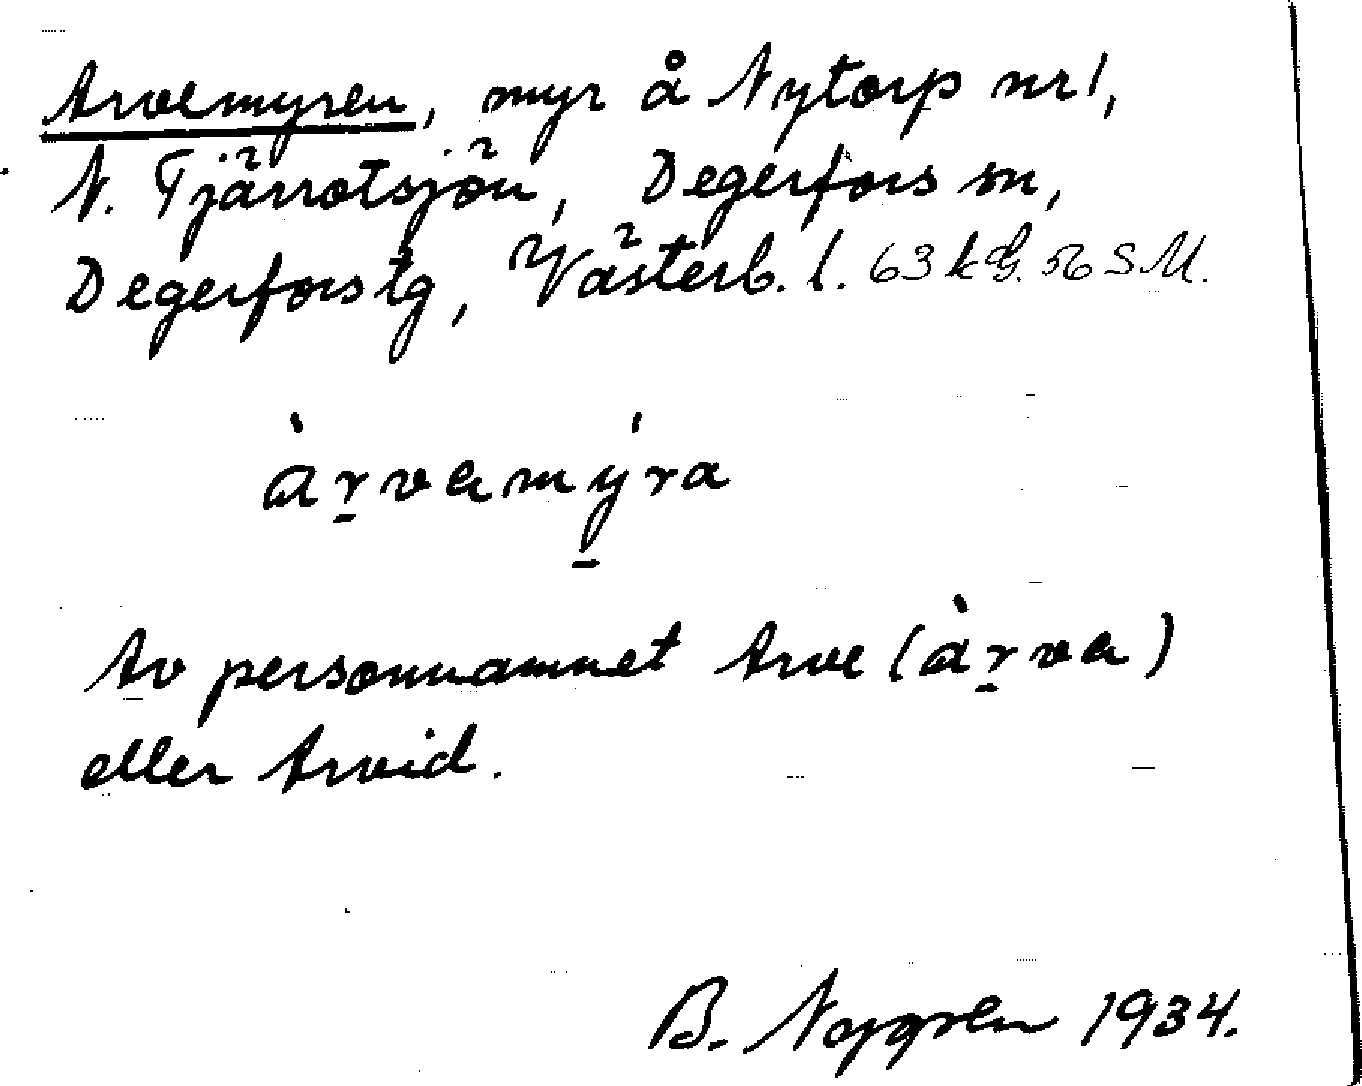 Arvemyren, myr å Nytorp nr 1,
N. Tjärrotsjön, Degerfors sn,
Degerfors tg, Västerb. l. 63 kG. 56 SM.
àr̠vamý̠ra
Av personnamnet Arve (àr̠va)
eller Arvid.
B. Nygren 1934.